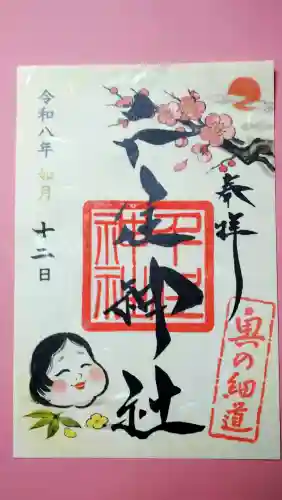 奉拝
神社
神社
奥の細道
令和八年 如月 十二日